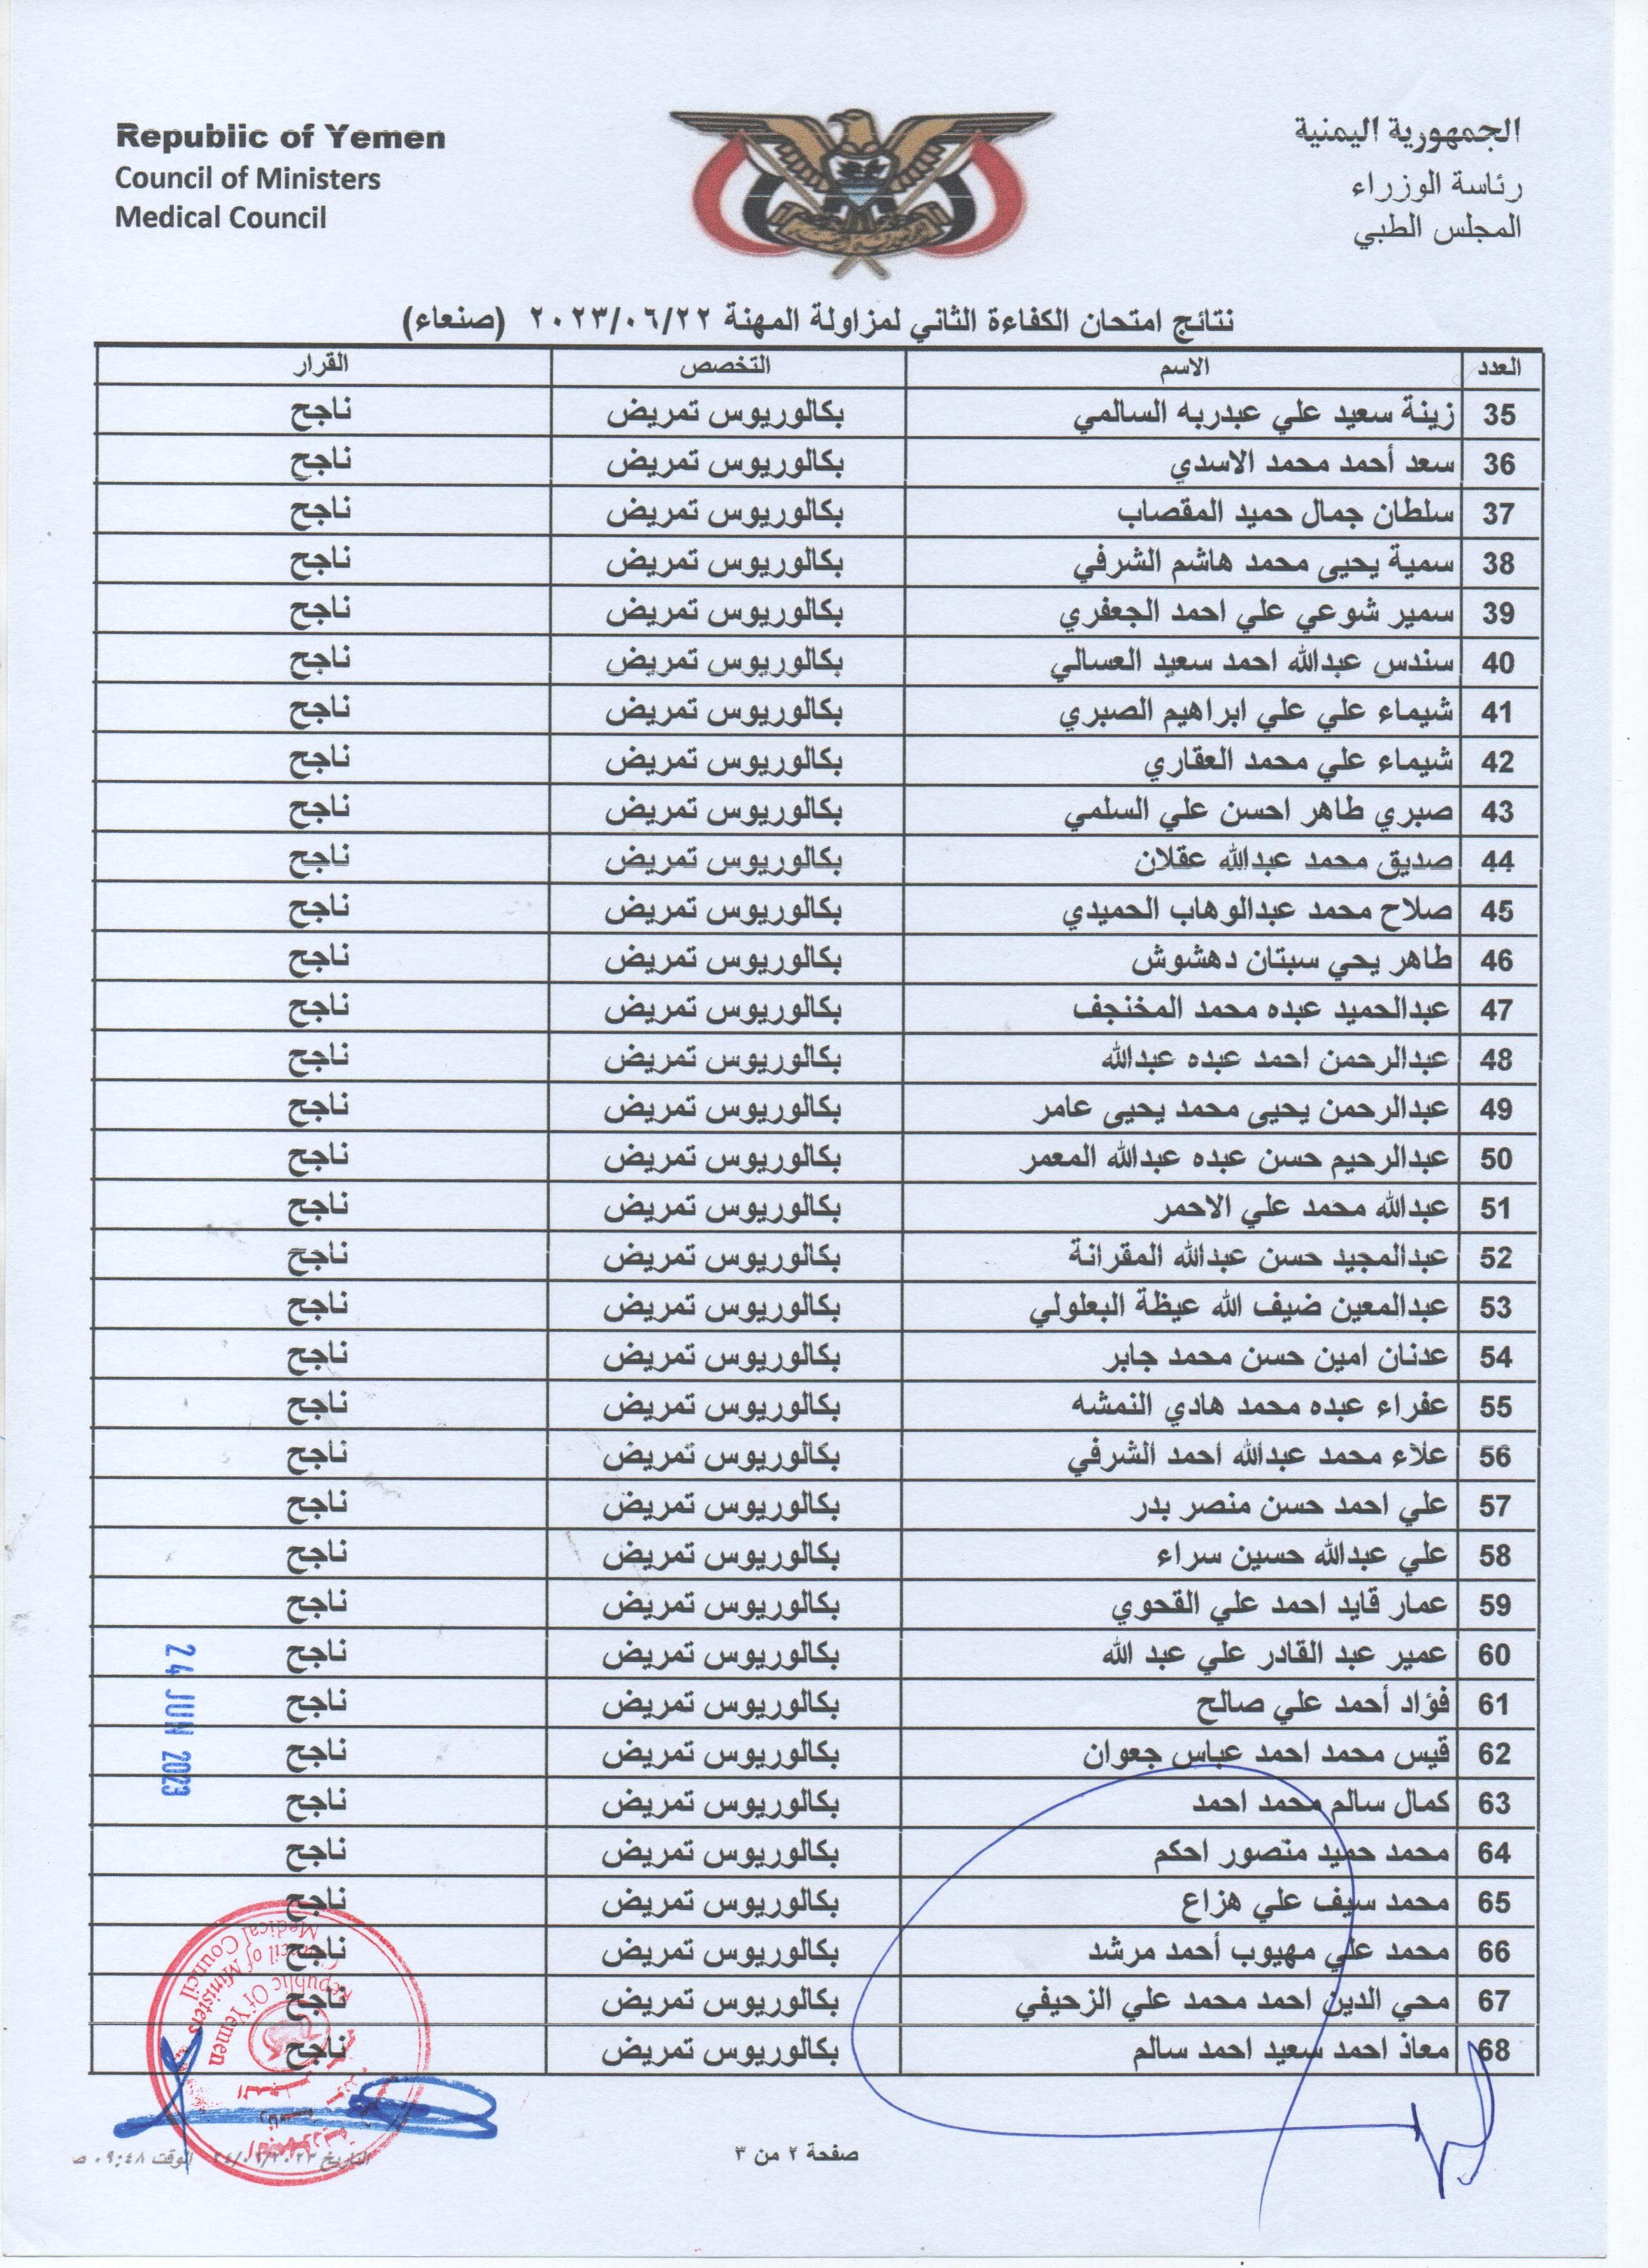 Republic of Yemen
Council of Ministers
Medical Council
الجمهورية اليمنية
رئاسة الوزراء
المجلس الطبي
نتائج امتحان الكفاءة الثاني لمزاولة المهنة ٢٠٢٣/٠٦/٢٢ (صنعاء)
العدد الاسم التخصص القرار
35 زينة سعيد علي عبدربه السالمي بكالوريوس تمريض ناجح
36 سعد أحمد محمد الاسدي بكالوريوس تمريض ناجح
37 سلطان جمال حميد المقصاب بكالوريوس تمريض ناجح
38 سمية يحيى محمد هاشم الشرفي بكالوريوس تمريض ناجح
39 سمير شوعي علي احمد الجعفري بكالوريوس تمريض ناجح
40 سندس عبدالله احمد سعيد العسالي بكالوريوس تمريض ناجح
41 شيماء علي علي ابراهيم الصبري بكالوريوس تمريض ناجح
42 شيماء علي محمد العقاري بكالوريوس تمريض ناجح
43 صبري طاهر احسن علي السلمي بكالوريوس تمريض ناجح
44 صديق محمد عبدالله عقلان بكالوريوس تمريض ناجح
45 صلاح محمد عبدالوهاب الحميدي بكالوريوس تمريض ناجح
46 طاهر يحي سبتان دهشوش بكالوريوس تمريض ناجح
47 عبدالحميد عبده محمد المخنجف بكالوريوس تمريض ناجح
48 عبدالرحمن احمد عبده عبدالله بكالوريوس تمريض ناجح
49 عبدالرحمن يحيى محمد يحيى عامر بكالوريوس تمريض ناجح
50 عبدالرحيم حسن عبده عبدالله المعمر بكالوريوس تمريض ناجح
51 عبدالله محمد علي الاحمر بكالوريوس تمريض ناجح
52 عبدالمجيد حسن عبدالله المقرانة بكالوريوس تمريض ناجح
53 عبدالمعين ضيف الله عيظة البعلولي بكالوريوس تمريض ناجح
54 عدنان امين حسن محمد جابر بكالوريوس تمريض ناجح
55 عفراء عبده محمد هادي النمشه بكالوريوس تمريض ناجح
56 علاء محمد عبدالله احمد الشرفي بكالوريوس تمريض ناجح
57 علي احمد حسن منصر بدر بكالوريوس تمريض ناجح
58 علي عبدالله حسين سراء بكالوريوس تمريض ناجح
59 عمار قايد احمد علي القحوي بكالوريوس تمريض ناجح
60 عمير عبد القادر علي عبد الله بكالوريوس تمريض ناجح
61 فؤاد أحمد علي صالح بكالوريوس تمريض ناجح
62 قيس محمد احمد عباس جعوان بكالوريوس تمريض ناجح
63 كمال سالم محمد احمد بكالوريوس تمريض ناجح
64 محمد حميد منصور احكم بكالوريوس تمريض ناجح
65 محمد سيف علي هزاع بكالوريوس تمريض ناجح
66 محمد علي مهيوب أحمد مرشد بكالوريوس تمريض ناجح
67 محي الدين احمد محمد علي الزحيفي بكالوريوس تمريض ناجح
68 معاذ احمد سعيد احمد سالم بكالوريوس تمريض ناجح
24 JUN 2023
Republic Of Yemen
Council of Ministers
Medical Council
صفحة ٢ من ٣
التاريخ ٢٤/٠٦/٢٠٢٣ الوقت ٠٩:٤٨ ص